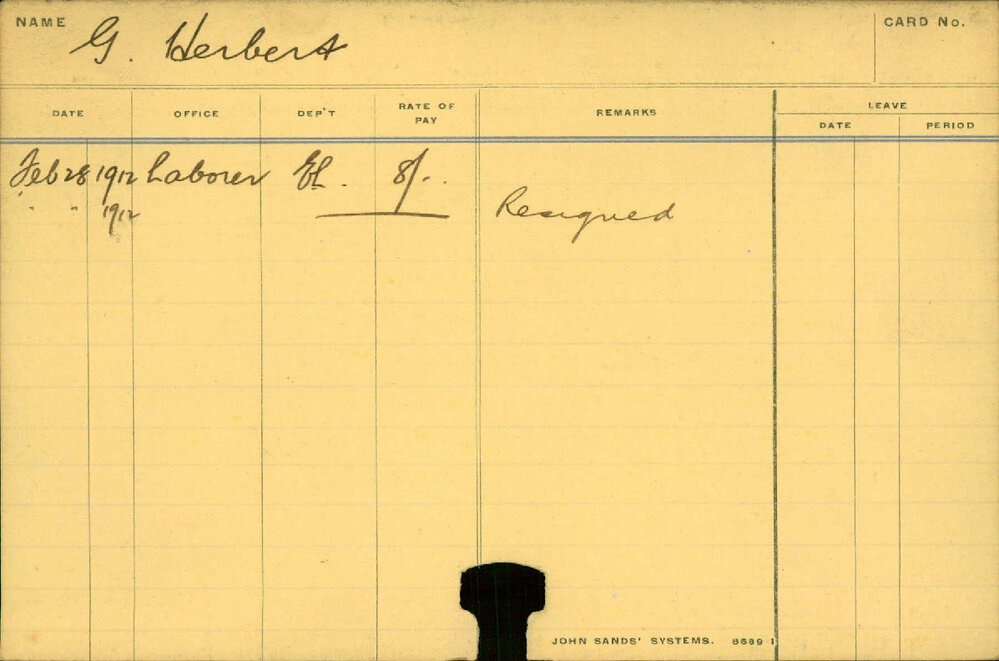 NAME G. Herbert CARD No.
DATE OFFICE DEP'T RATE OF PAY REMARKS LEAVE
DATE PERIOD
Feb 28 1912 Laborer EL. 8/-.
" " 1912 Resigned
JOHN SANDS' SYSTEMS. 8689 1